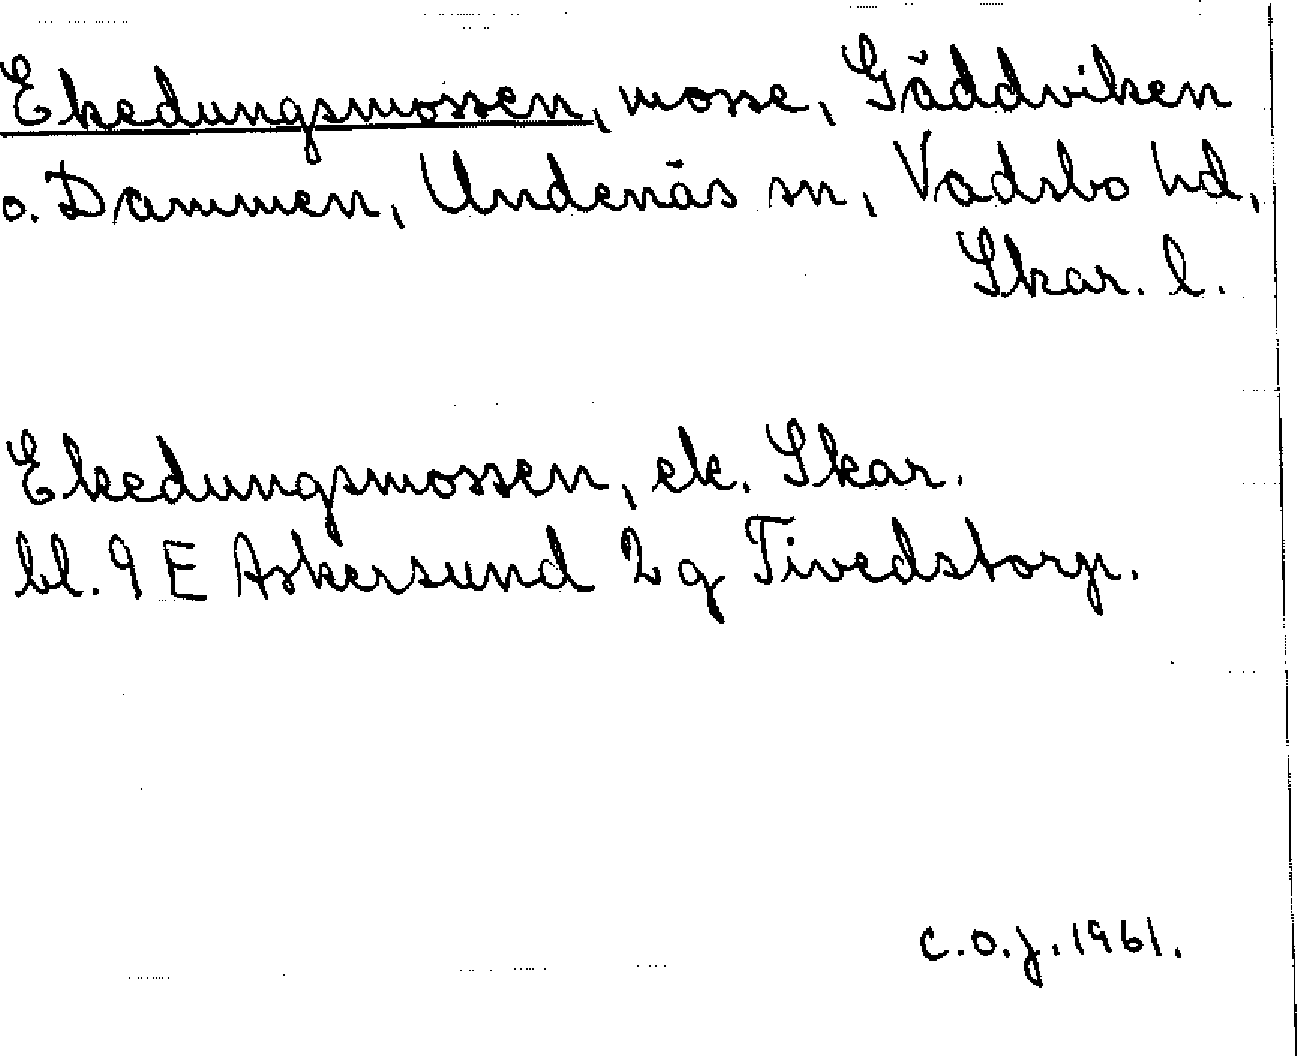 Ekedungsmossen, mosse, Gäddviken
o. Dammen, Undenäs sn, Vadsbo hd,
Skar. l.
Ekedungsmossen, ek. Skar.
bl. 9 E Askersund 2 g Tivedstorp.
C.O.J. 1961.